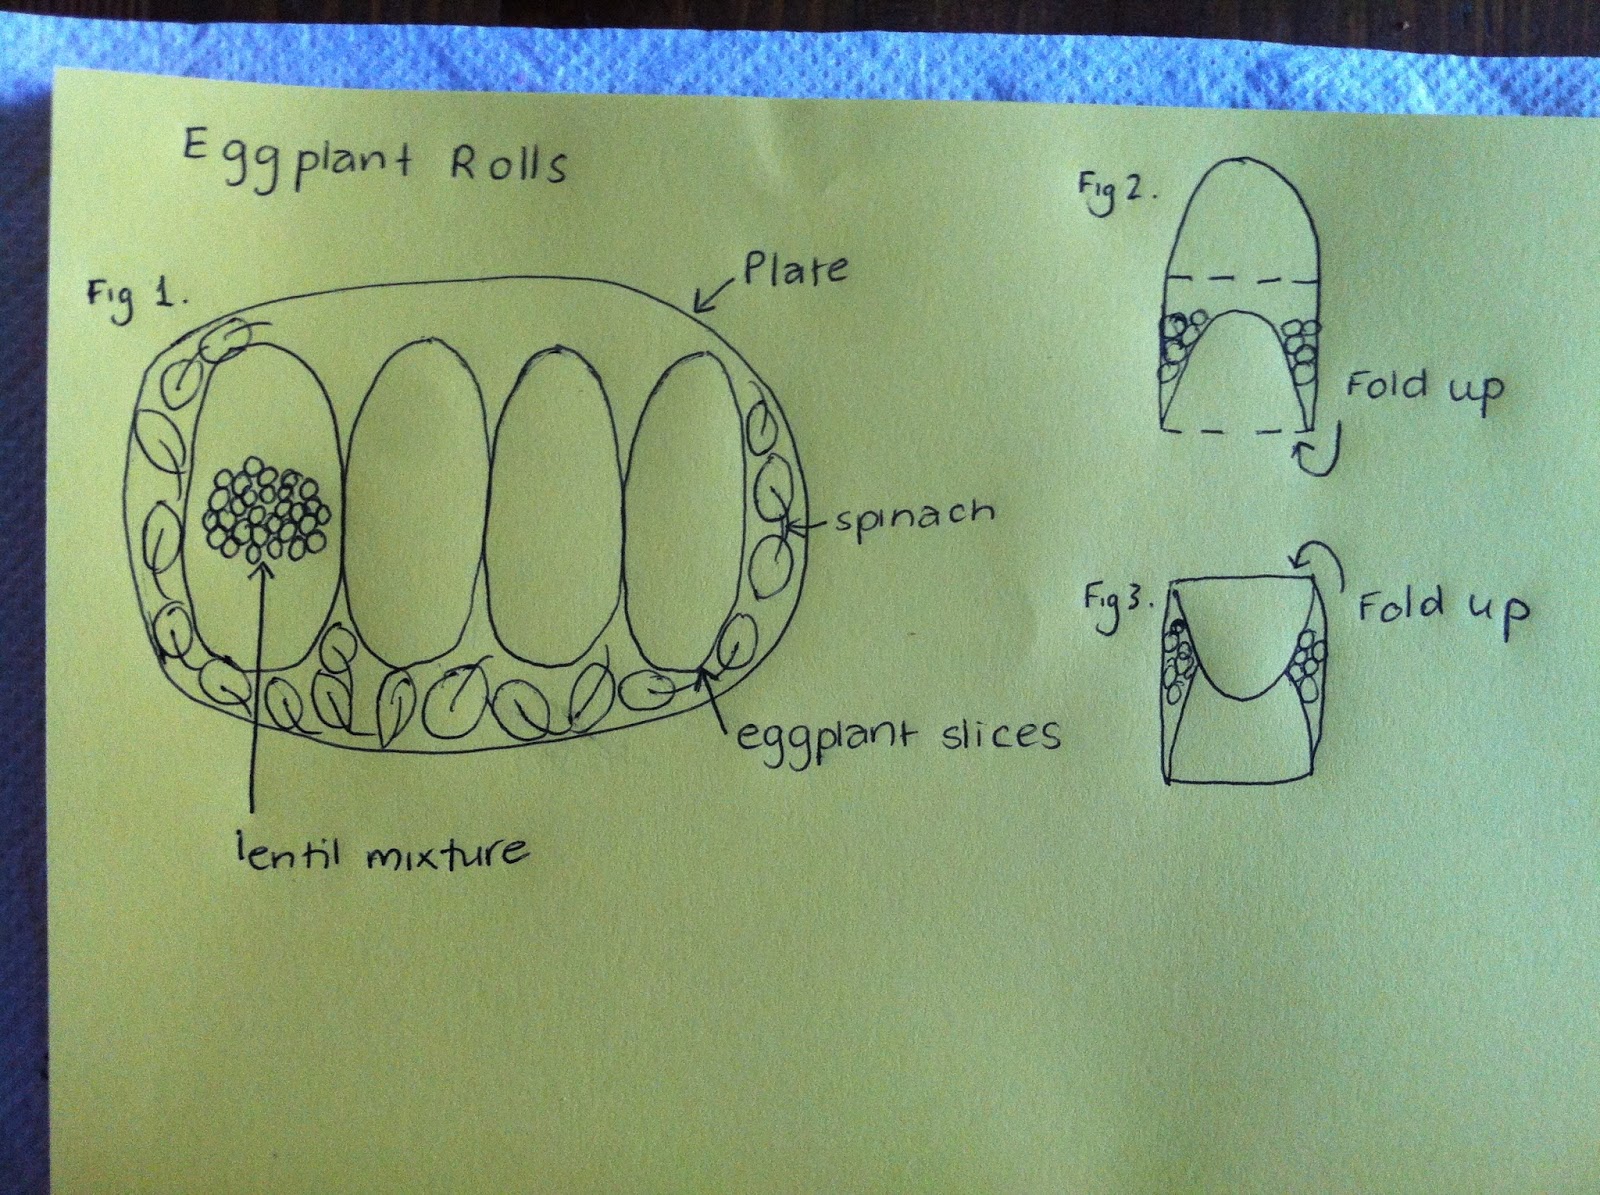 Eggplant Rolls
Fig 1.
Plate
spinach
eggplant slices
lentil mixture
Fig 2.
Fold up
Fig 3.
Fold up